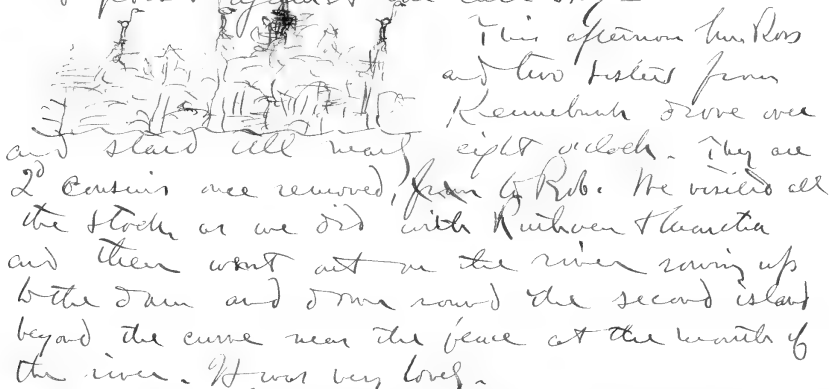 against
This afternoon Mrs Ross
and two sisters from
Kennebunk drove over
and staid till nearly eight o'clock. They are
2d cousins once removed, from to Rob. We visited all
the stock as we did with Ruthven & Martha
and then went out on the river rowing up
to the dam and down round the second island
beyond the curve near the place at the mouth of
the river. It was very lovely.